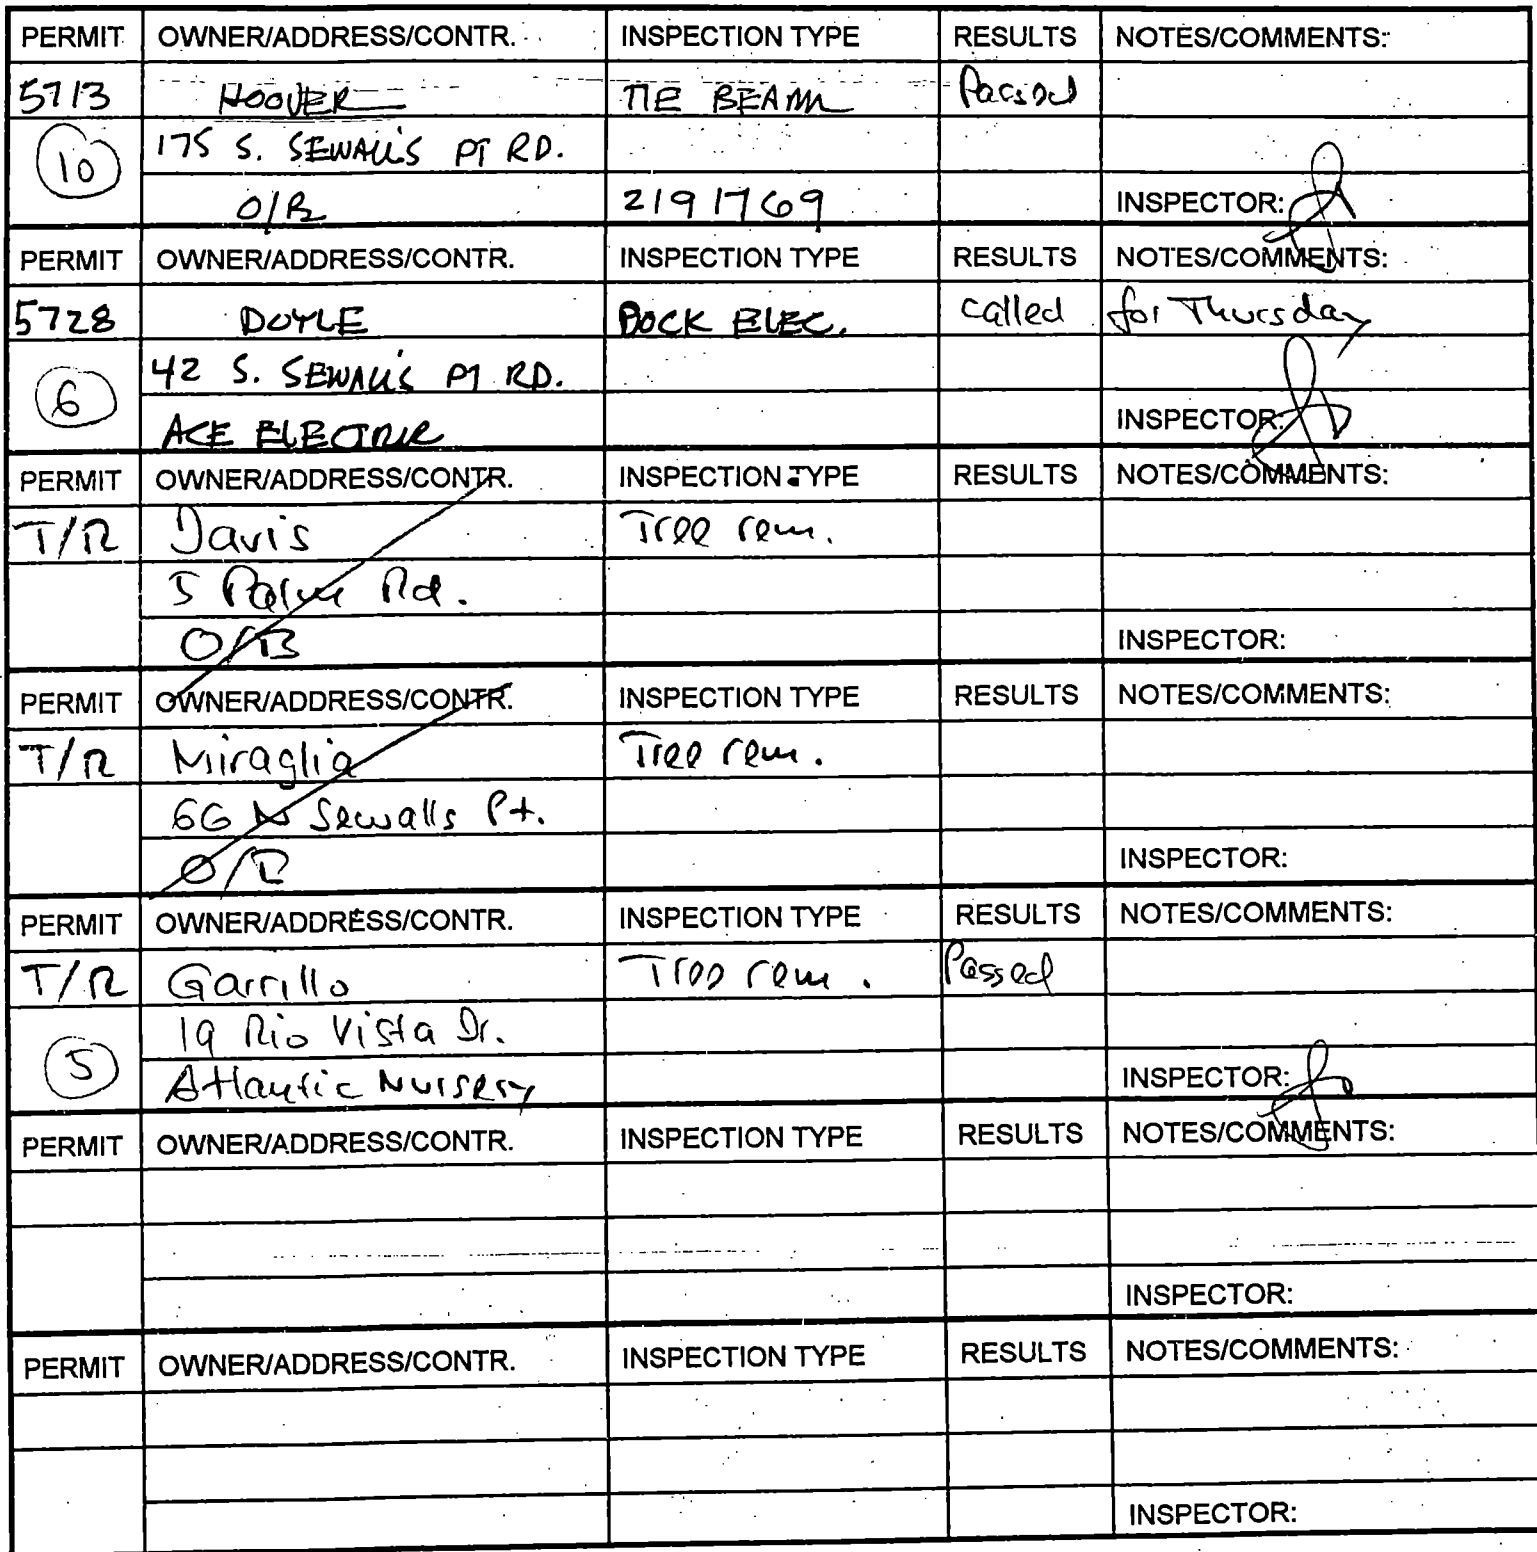 PERMIT OWNER/ADDRESS/CONTR. INSPECTION TYPE RESULTS NOTES/COMMENTS:
5713 HOOVER TIE BEAM Passed
10 175 S. SEWALL'S PT RD.
O/B 2191769 INSPECTOR:
PERMIT OWNER/ADDRESS/CONTR. INSPECTION TYPE RESULTS NOTES/COMMENTS:
5728 DOYLE DOCK ELEC. called for Thursday
6 42 S. SEWALL'S PT RD.
ACE ELECTRIC INSPECTOR:
PERMIT OWNER/ADDRESS/CONTR. INSPECTION TYPE RESULTS NOTES/COMMENTS:
T/R Davis Tree rem.
5 Palm Rd.
O/B INSPECTOR:
PERMIT OWNER/ADDRESS/CONTR. INSPECTION TYPE RESULTS NOTES/COMMENTS:
T/R Miraglia Tree rem.
66 N Sewalls Pt.
O/B INSPECTOR:
PERMIT OWNER/ADDRESS/CONTR. INSPECTION TYPE RESULTS NOTES/COMMENTS:
T/R Garrillo Tree rem. Passed
5 19 Rio Vista Dr.
Atlantic Nursery INSPECTOR:
PERMIT OWNER/ADDRESS/CONTR. INSPECTION TYPE RESULTS NOTES/COMMENTS:
INSPECTOR:
PERMIT OWNER/ADDRESS/CONTR. INSPECTION TYPE RESULTS NOTES/COMMENTS:
INSPECTOR: